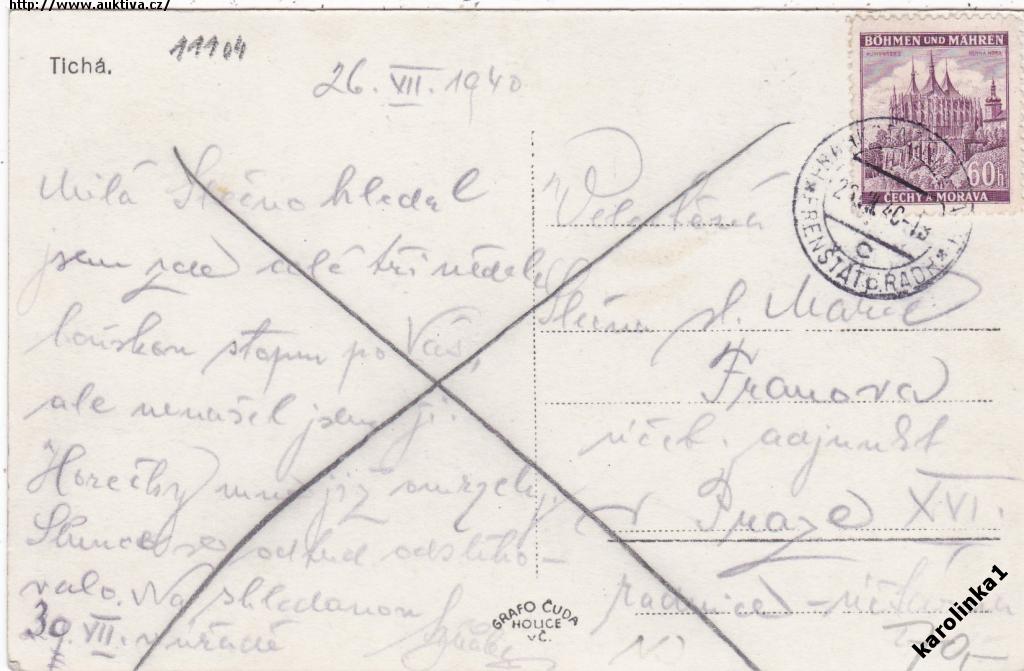 http://www.auktiva.cz/
11104
Tichá.
26. VII. 1940
BÖHMEN UND MÄHREN
60h
ČECHY A MORAVA
FRENŠTÁT p. RADH.
c
Milá Slečno hledal
jsem zde celé tři neděle
kouskem stopu po Vás,
ale nenašel jsem ji.
Horečky mne již omrzely.
Slunce se odtud odstěho-
valo. Na shledanou
30. VII. v úřadě
Velectěná
Slečna sl. Marie
Franova
účet. adjunkt
v Praze XVI.
radnice - účtárna
GRAFO ČUDA
HOLICE
v Č.
karolinka1